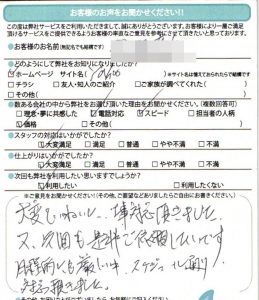 お客様のお声をお聞かせください!!
この度は弊社サービスをご利用いただきまして、誠にありがとうございます。お客様により一層ご満足
頂けるサービスをご提供できるようお客様の率直なご意見を参考にさせて頂きたいと思っております。
●お客様のお名前(無記名でも結構です)
●どのようにして弊社をお知りになりましたか?
☑ホームページ サイト名( ) ※サイト名は憶えておられたらで結構です
□チラシ □友人・知人のご紹介 □ご家族が調べてくれた( )
□その他( )
●数ある会社の中から弊社をお選び頂いた理由をお聞かせください。(複数回答可)
□理念・夢に共感した ☑電話対応 ☑スピード □担当者の人柄
☑価格 □その他( )
●スタッフの対応はいかがでしたか?
☑大変満足 □満足 □普通 □やや不満 □不満
●仕上がりはいかがでしたか?
☑大変満足 □満足 □普通 □やや不満 □不満
●次回も弊社を利用したいと思いますでしょうか?
☑利用したい □利用したくない
※ご意見をお聞かせください!(その他、ご要望などありましたらご自由にお書きください)
大変ていねいに、ご対応頂きました。
又、次回も是非ご依頼したいです。
時間的にも厳しい中、スケジュール通り
対応頂きました。